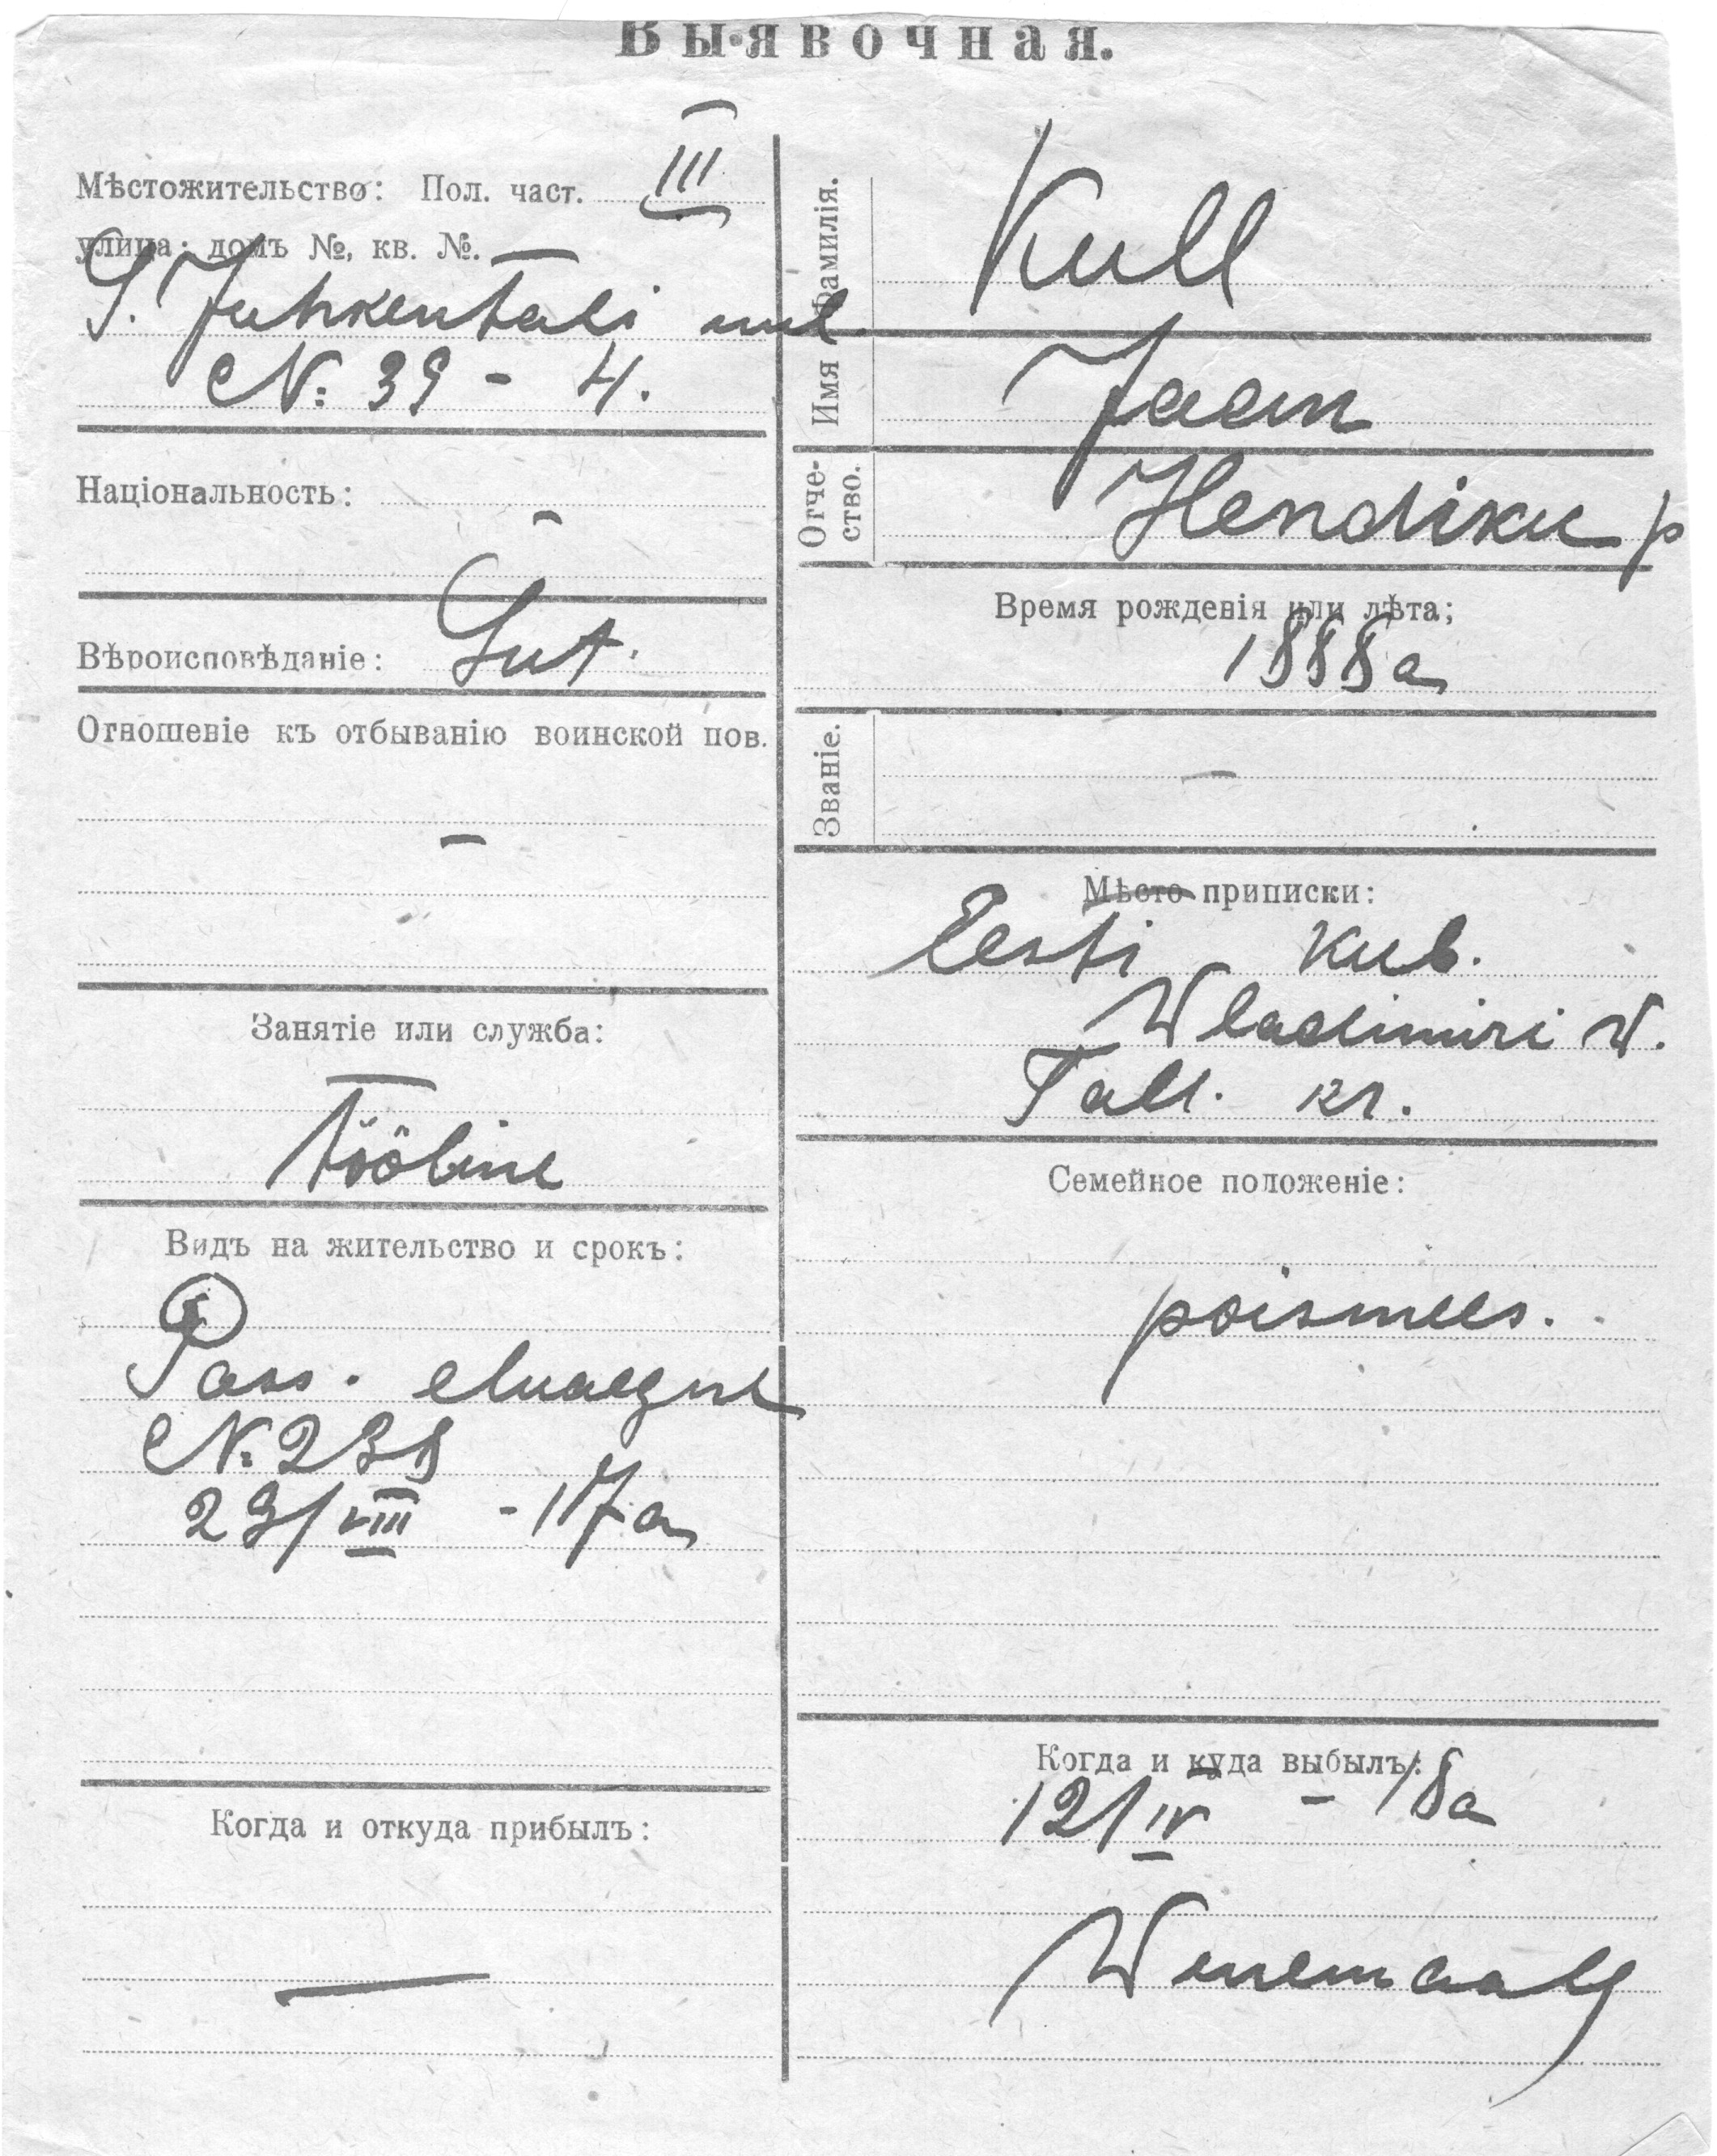 Выявочная.
Мѣстожительство: Пол. част. III
улица: домъ №, кв. №.
S. Juhkentali uul.
№ 39 - 4.
Національность: -
Вѣроисповѣданіе: Lut.
Отношеніе къ отбыванію воинской пов.
-
Занятіе или служба:
Tööline
Видъ на жительство и срокъ:
Pass. eluaegne
№ 238
23/VIII - 17 a
Когда и откуда прибылъ:
—
Фамилія. Kull
Имя Jaan
Отче-
ство. Hendriku p
Время рожденія или лѣта;
1888 a
Званіе. -
Мѣсто приписки:
Eesti kub.
Wladimiri w.
Tall. kr.
Семейное положеніе:
poismees.
Когда и куда выбылъ:
12/IV - 18 a
Wenemaale